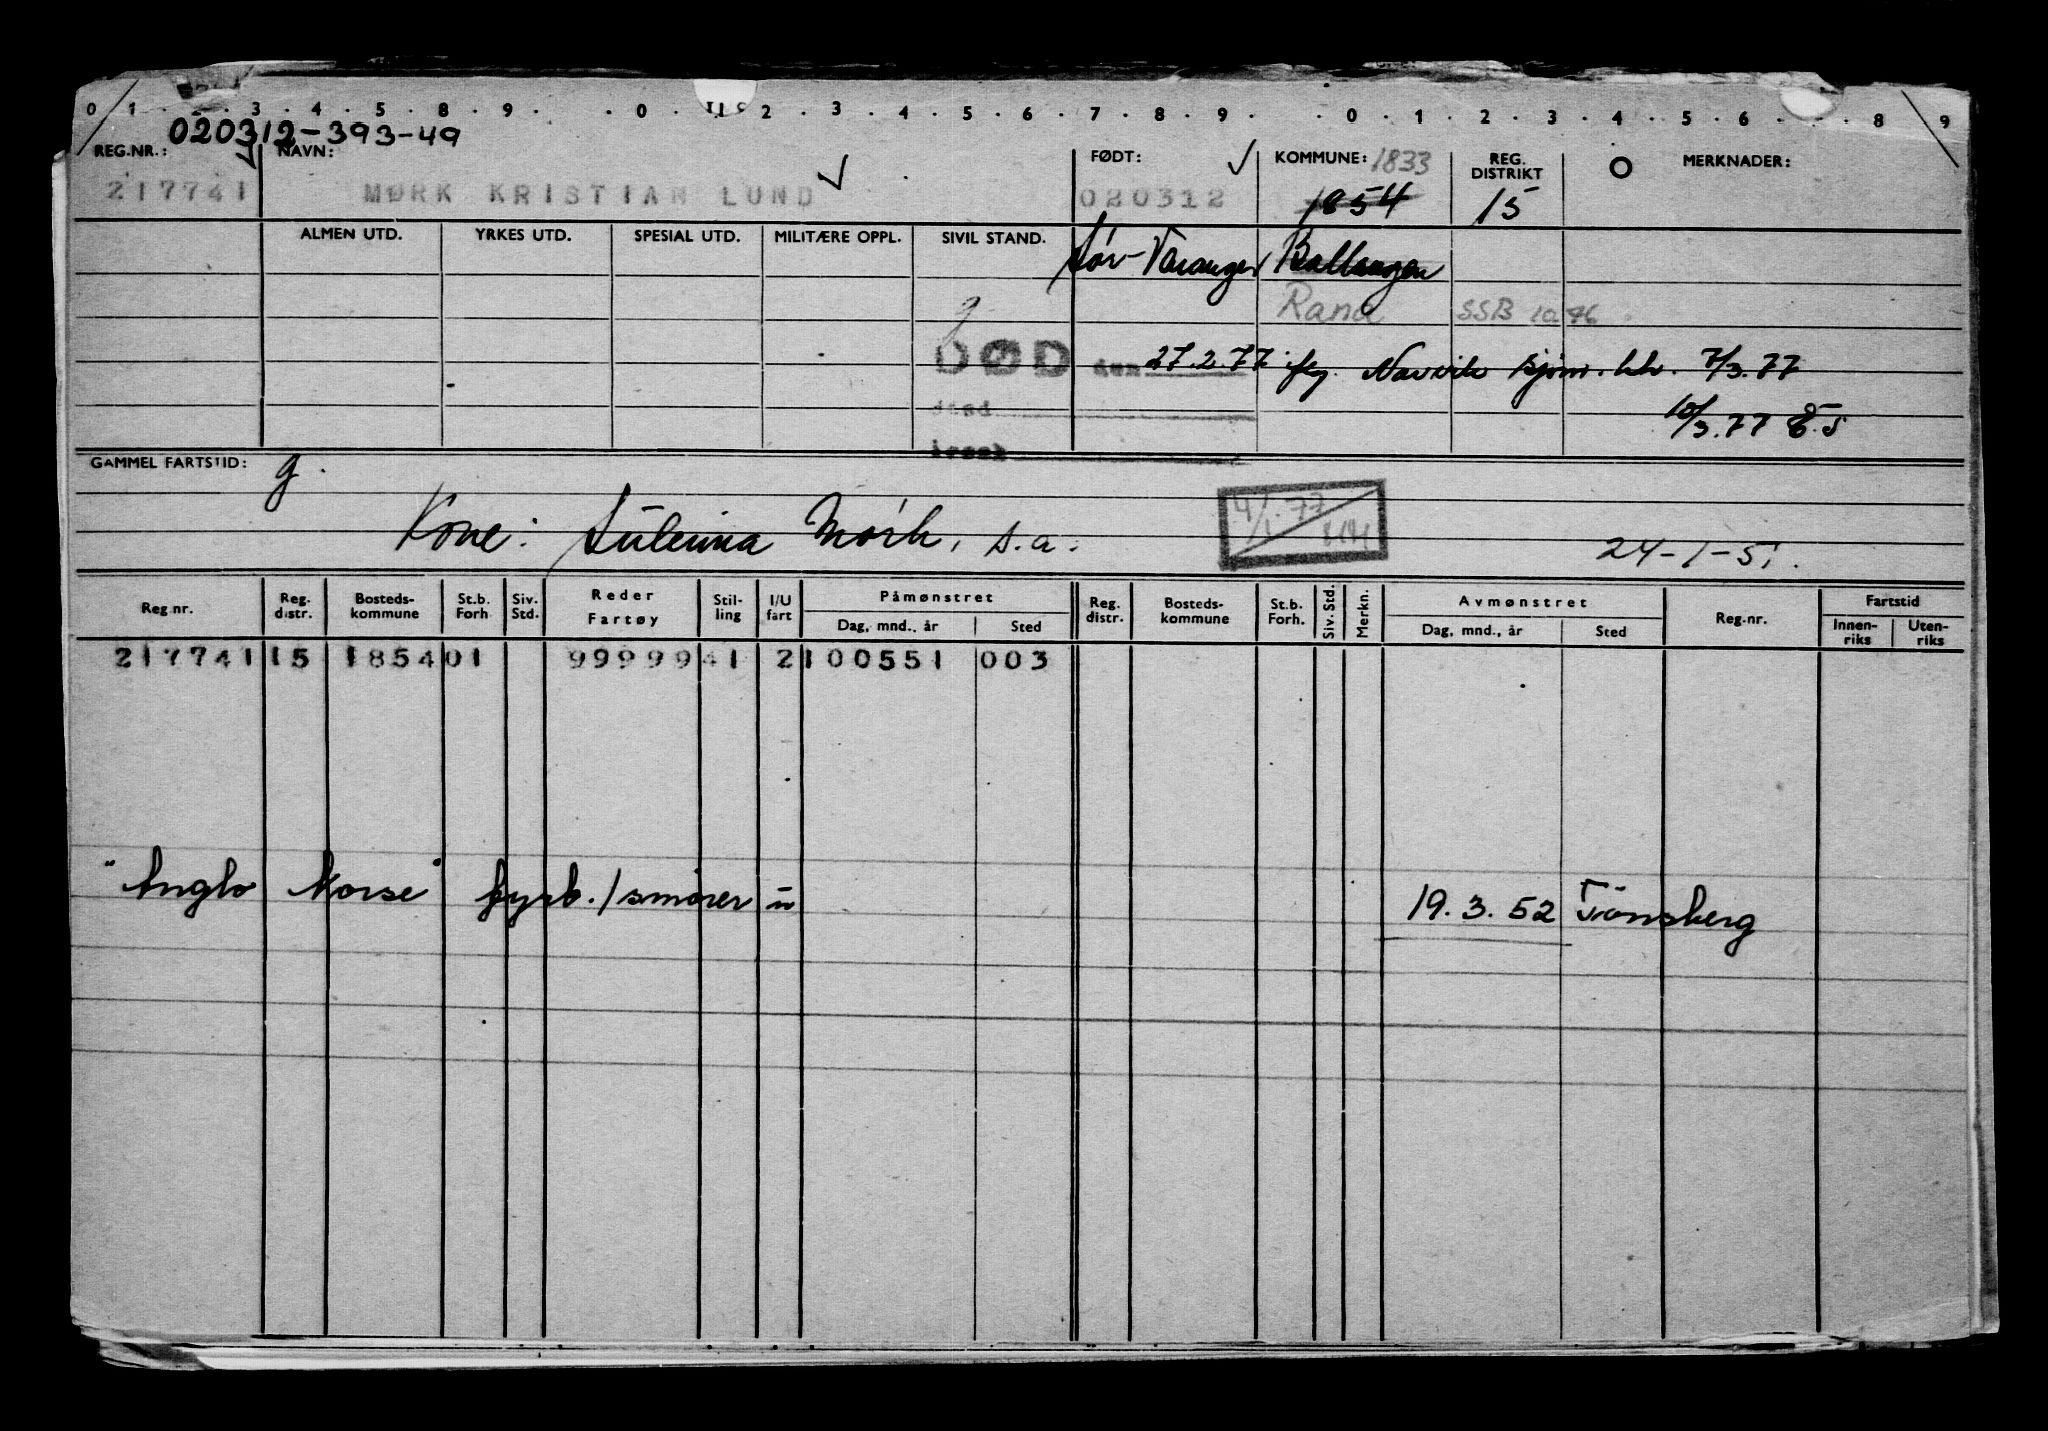 0 1 . 2 . 3 . 4 . 5 . 8 . 9 . . 0 . 1 . 2 . 3 . 4 . 5 . 6 . 7 . 8 . 9 . . 0 . 1 . 2 . 3 . 4 . 5 . 6 . . 8 . 9
020312-393-49
REG.NR.: NAVN: FØDT: KOMMUNE: 1833 REG. DISTRIKT MERKNADER:
217741 MØRK KRISTIAN LUND 020312 1854 15
ALMEN UTD. YRKES UTD. SPESIAL UTD. MILITÆRE OPPL. SIVIL STAND. Sør-Varanger Ballangen
g Rana SSB 10.76
DØD den 27.2.77 iflg. Narvik sjøm. 7/3.77
sted 10/3.77
GAMMEL FARTSTID: g.
Kone: Mørk, s.a. 4/1.77 24-1-51.
Reg.nr. Reg. distr. Bosteds-kommune St.b. Forh. Siv. Std. Reder Fartøy Stil-ling I/U fart Påmønstret Dag, mnd., år Sted Reg. distr. Bosteds-kommune St.b. Forh. Siv. Std. Merkn. Avmønstret Dag, mnd., år Sted Reg.nr. Fartstid Innen-riks Uten-riks
217741 15 1854 01 99999 41 2 100551 003
"Anglo Norse" fyrb./smører u 19.3.52 Tønsberg